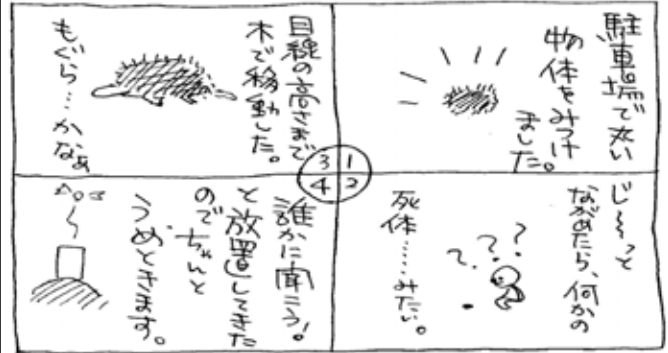 1
駐車場で丸い
物体をみつけ
ました。
2
じ〜っと
ながめたら、何かの
死体……みたい。
?
?
?
3
目線の高さまで
木で移動した。
もぐら…かなぁ
4
誰かに聞こう!
と放置してきた
のでちゃんと
うめときます。